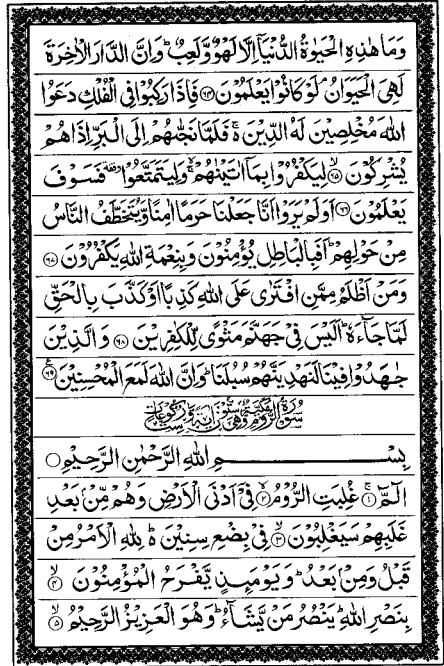 وَمَا هٰذِهِ الْحَيٰوةُ الدُّنْيَآ اِلَّا لَهْوٌ وَّلَعِبٌ ؕ وَاِنَّ الدَّارَ الْاٰخِرَةَ
لَهِىَ الْحَيَوَانُ ۘ لَوْ كَانُوْا يَعْلَمُوْنَ ﴿۶۴﴾ فَاِذَا رَكِبُوْا فِى الْفُلْكِ دَعَوُا
اللّٰهَ مُخْلِصِيْنَ لَهُ الدِّيْنَ ۚ۬ فَلَمَّا نَجّٰىهُمْ اِلَى الْبَرِّ اِذَا هُمْ
يُشْرِكُوْنَ ﴿۶۵﴾ۙ لِيَكْفُرُوْا بِمَآ اٰتَيْنٰهُمْ ۙۚ وَلِيَتَمَتَّعُوْا ۥ فَسَوْفَ
يَعْلَمُوْنَ ﴿۶۶﴾ اَوَلَمْ يَرَوْا اَنَّا جَعَلْنَا حَرَمًا اٰمِنًا وَّيُتَخَطَّفُ النَّاسُ
مِنْ حَوْلِهِمْ ؕ اَفَبِالْبَاطِلِ يُؤْمِنُوْنَ وَبِنِعْمَةِ اللّٰهِ يَكْفُرُوْنَ ﴿۶۷﴾
وَمَنْ اَظْلَمُ مِمَّنِ افْتَرٰى عَلَى اللّٰهِ كَذِبًا اَوْ كَذَّبَ بِالْحَقِّ
لَمَّا جَآءَهٗ ؕ اَلَيْسَ فِىْ جَهَنَّمَ مَثْوًى لِّلْكٰفِرِيْنَ ﴿۶۸﴾ وَالَّذِيْنَ
جَاهَدُوْا فِيْنَا لَنَهْدِيَنَّهُمْ سُبُلَنَا ؕ وَاِنَّ اللّٰهَ لَمَعَ الْمُحْسِنِيْنَ ﴿۶۹﴾
سُوْرَةُ الرُّوْمِ مَكِّيَّةٌ وَّهِىَ سِتُّوْنَ اٰيَةً وَّسِتُّ رُكُوْعَاتٍ
بِسْمِ اللّٰهِ الرَّحْمٰنِ الرَّحِيْمِ
الٓمّٓ ﴿۱﴾ۚ غُلِبَتِ الرُّوْمُ ﴿۲﴾ۙ فِىْٓ اَدْنَى الْاَرْضِ وَهُمْ مِّنْۢ بَعْدِ
غَلَبِهِمْ سَيَغْلِبُوْنَ ﴿۳﴾ۙ فِىْ بِضْعِ سِنِيْنَ ؕ۬ لِلّٰهِ الْاَمْرُ مِنْ
قَبْلُ وَمِنْۢ بَعْدُ ؕ وَيَوْمَئِذٍ يَّفْرَحُ الْمُؤْمِنُوْنَ ﴿۴﴾ۙ
بِنَصْرِ اللّٰهِ ؕ يَنْصُرُ مَنْ يَّشَآءُ ؕ وَهُوَ الْعَزِيْزُ الرَّحِيْمُ ﴿۵﴾ۙ